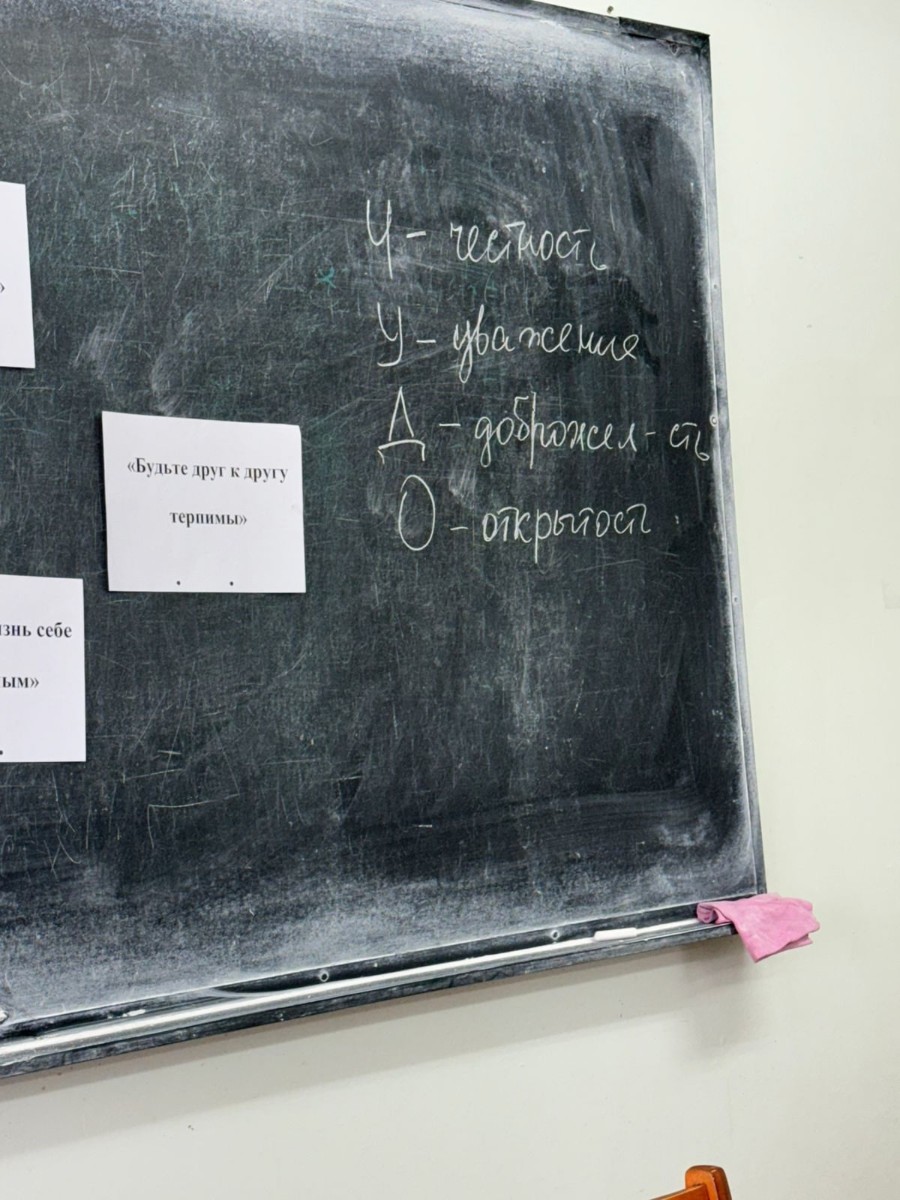 »
Ч - честность
У - уважение
Д - доброжел-сть
О - открытость
«Будьте друг к другу
терпимы»
знь себе
ым»